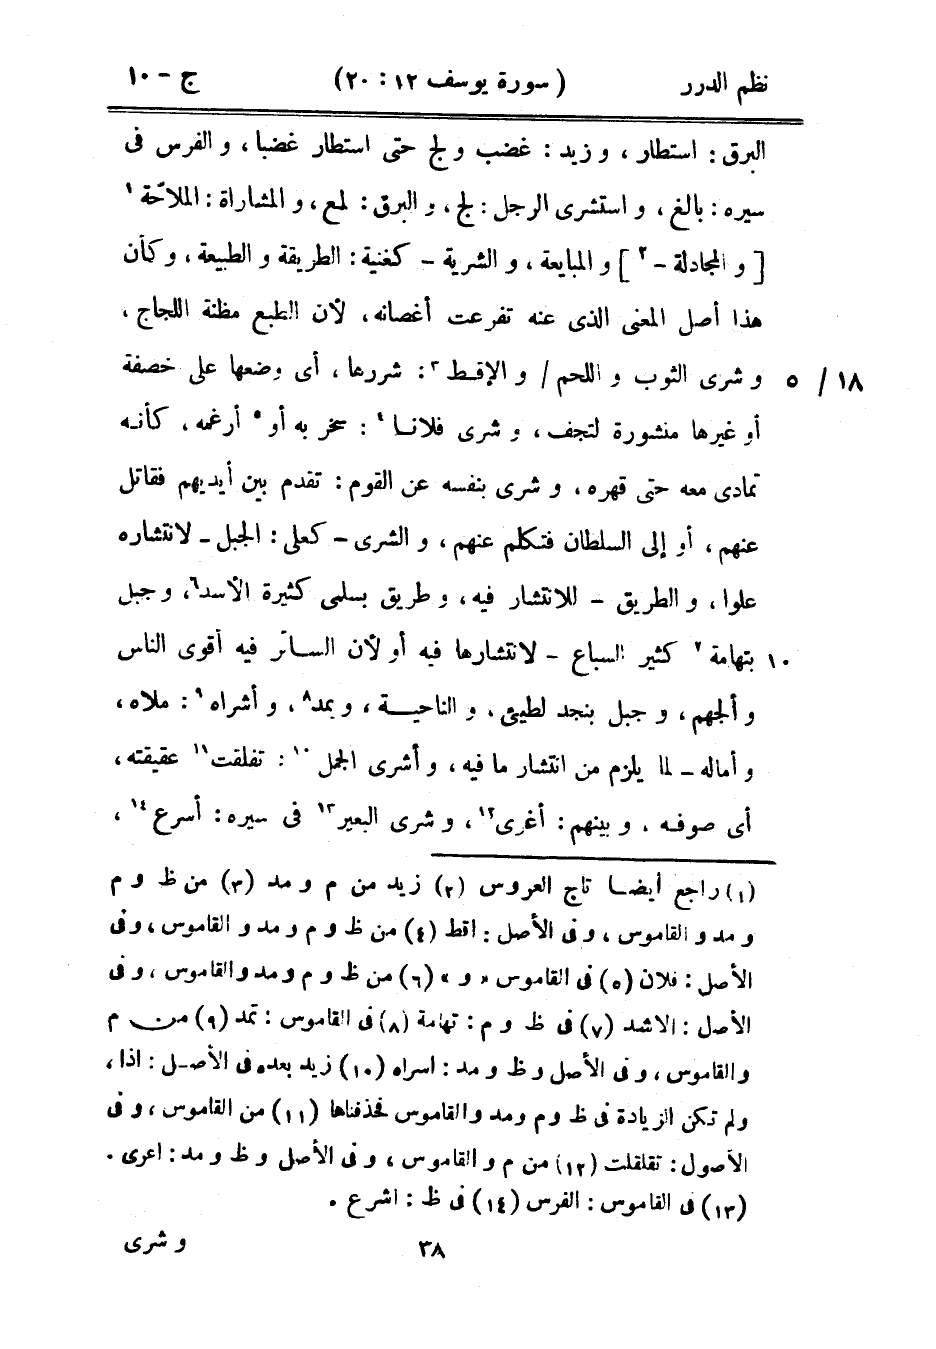 نظم الدرر ( سورة يوسف ١٢ : ٢٠ ) ج - ١٠
البرق : استطار ، و زيد : غضب و لج حتى استطار غضبا ، و الفرس فى
سيره : بالغ ، و استشرى الرجل : لج ، و البرق : لمع ، و المشاراة : الملاحّة ١
[ و المجادلة - ٢ ] و المبايعة ، و الشرية - كغنية : الطريقة و الطبيعة ، و كأن
هذا أصل المعنى الذى عنه تفرعت أغصانه ، لأن الطبع مظنة اللجاج ،
١٨ / ٥ و شرى الثوب و اللحم / و الإقط ٣ : شررها ، أى وضعها على خصفة
أو غيرها منشورة لتجف ، و شرى فلانا ٤ : سخر به أو ٥ أرغمه ، كأنه
تمادى معه حتى قهره ، و شرى بنفسه عن القوم : تقدم بين أيديهم فقاتل
عنهم ، أو إلى السلطان فتكلم عنهم ، و الشرى - كعلى : الجبل - لانتشاره
علوا ، و الطريق - للانتشار فيه ، و طريق بسلمى كثيرة الأسد ٦ ، و جبل
١٠ بتهامة ٧ كثير السباع - لانتشارها فيه أو لأن السائر فيه أقوى الناس
و ألجهم ، و جبل بنجد لطيئ ، و الناحية ، و يمد ٨ ، و أشراه ٩ : ملاه ،
و أماله - لما يلزم من انتشار ما فيه ، و أشرى الجمل ١٠ : تفلقت ١١ عقيقته ،
أى صوفه . و بينهم : أغرى ١٢ ، و شرى البعير ١٣ فى سيره : أسرع ١٤ ،
(١) راجع أيضا تاج العروس (٢) زيد من م و مد (٣) من ظ و م
و مد و القاموس ، و فى الأصل : اقط (٤) من ظ و م و مد و القاموس ، و فى
الأصل : فلان (٥) فى القاموس « و » (٦) من ظ و م و مد و القاموس ، و فى
الأصل : الاشد (٧) فى ظ و م : تهامة (٨) فى القاموس : تمد (٩) من م
و القاموس ، و فى الأصل و ظ و مد : اسراه (١٠) زيد بعده فى الأصل : اذا ،
ولم تكن الزيادة فى ظ و م ومد والقاموس فحذفناها (١١) من القاموس ، و فى
الأصول : تقلقلت (١٢) من م و القاموس ، و فى الأصل و ظ و مد : اعرى .
(١٣) فى القاموس : الفرس (١٤) فى ظ : اشرع .
٣٨ و شرى